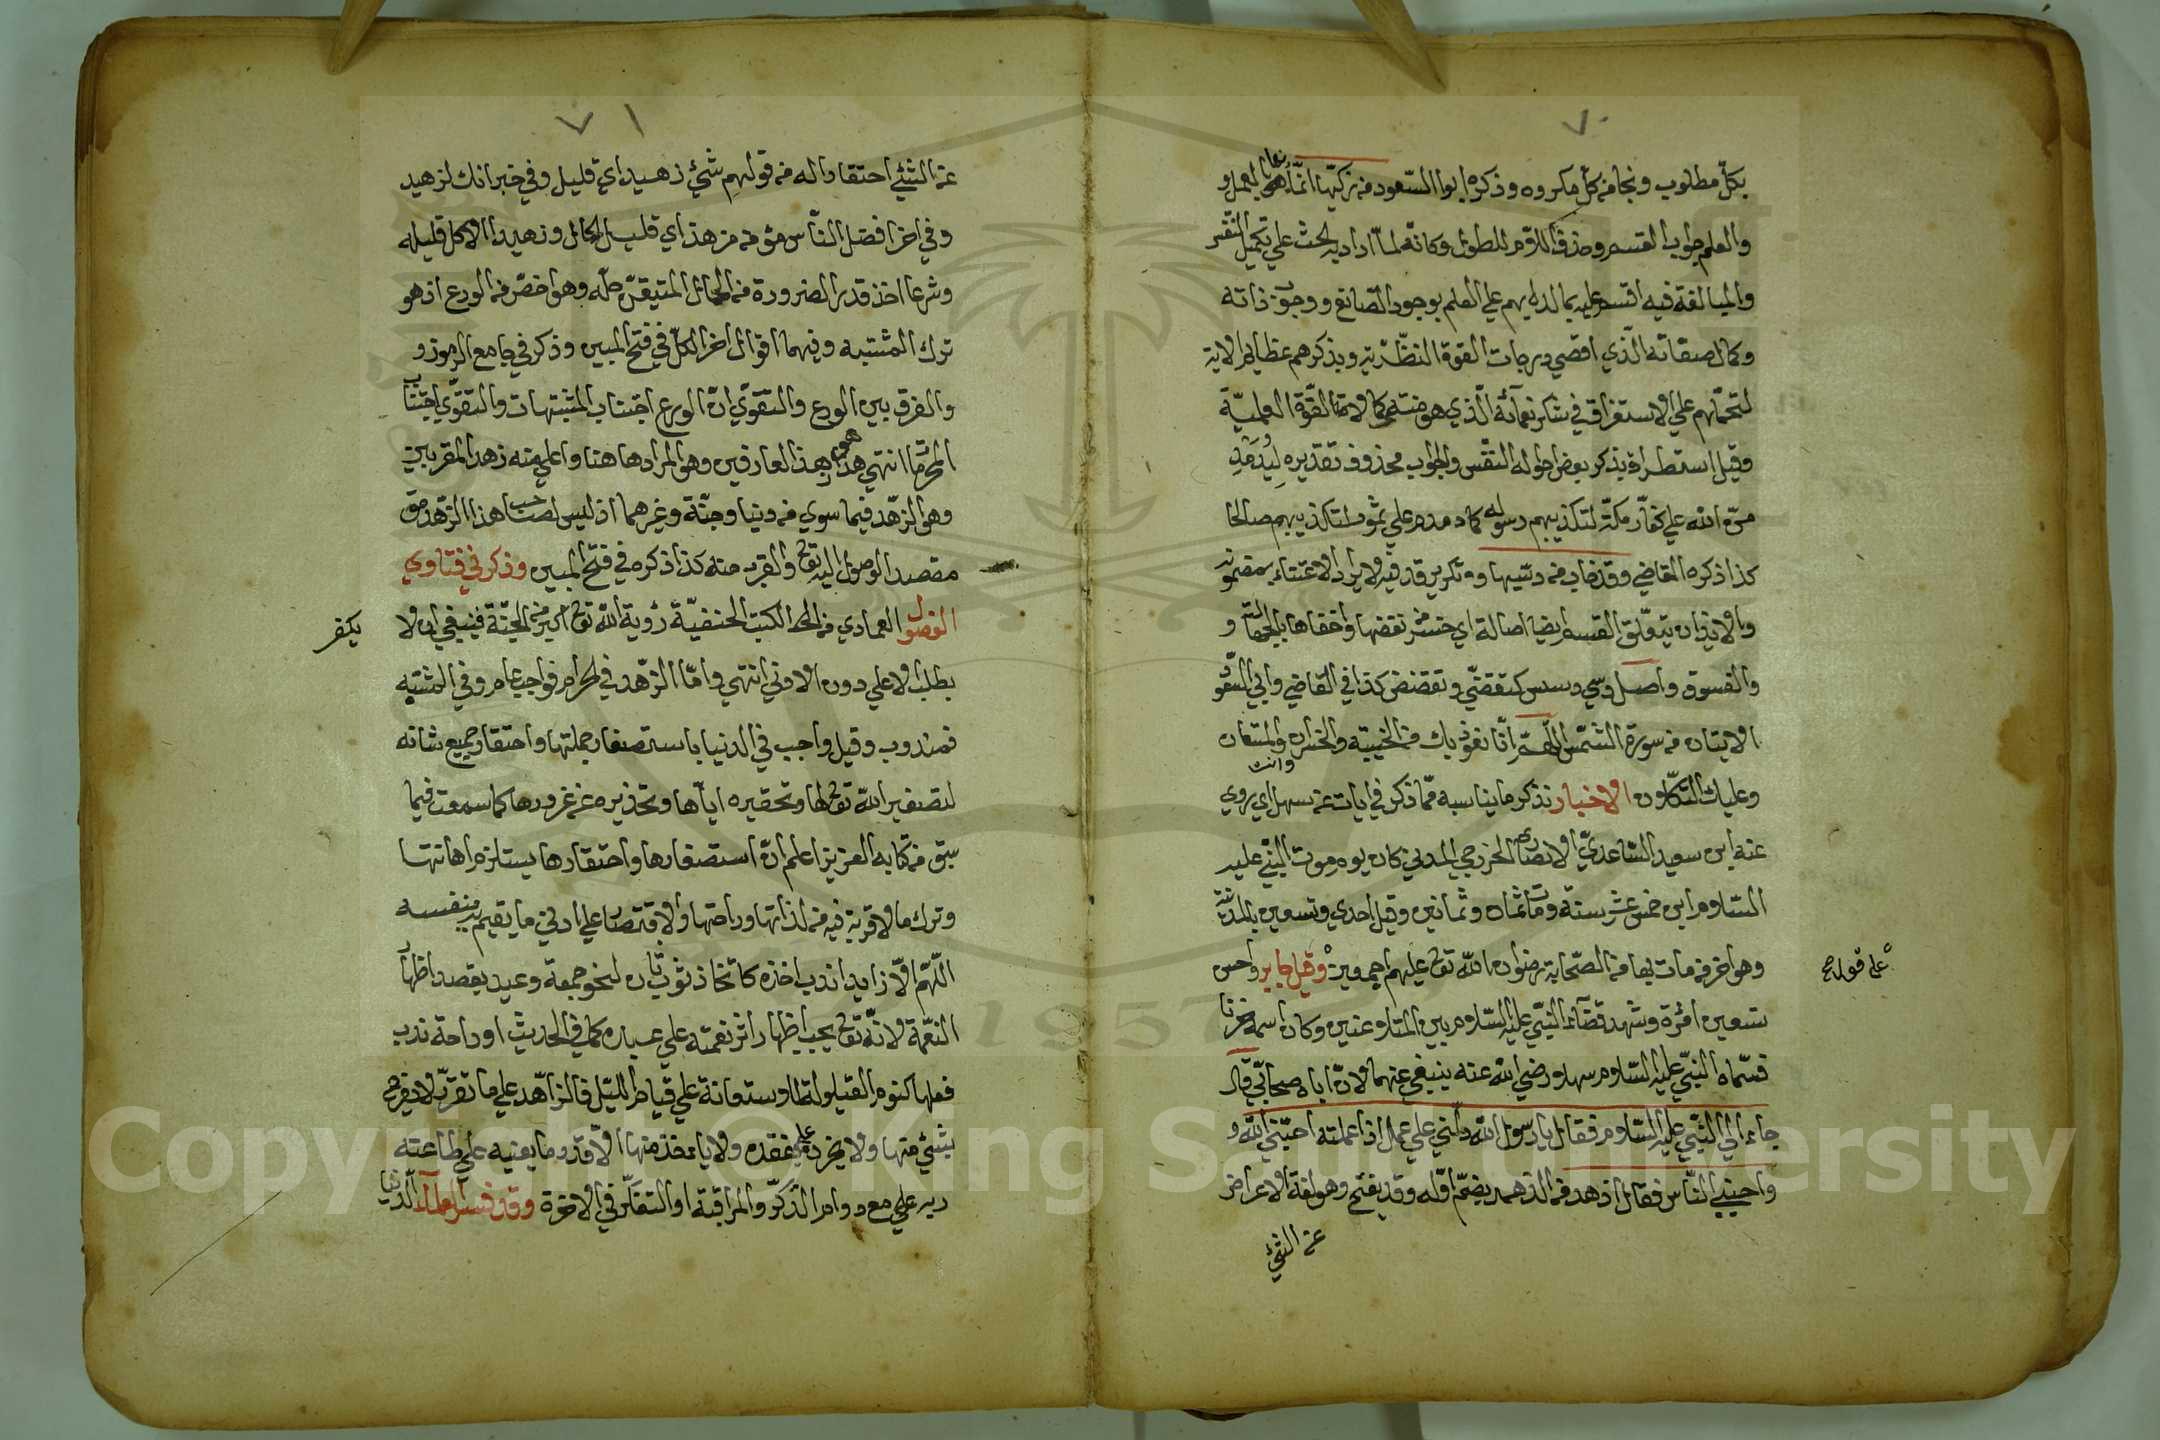 ٧٠
بكلّ مطلوب ونجا من كلّ مكروه وذكره ابوا السّعود من زكّيها انماها بالعمل و
والعلم جواب القسم وحذف اللام للطول وكانّه لمّا اراد به الحث على تكميل النّفس
والمبالغة فيه اقسم عليه بما لدلهم على العلم بوجود الصّانع ووجوب ذاته
وكمال صفاته الّذي اقصى درجات القوة النظّريّة ويذكرهم عظايم الاية
لتحملهم على الاستغراق في شكر نعمائه الّذي هو منتهى كمالات القوّة العمليّة
وقيل استطراد بذكر بعض احوال النفّس والجواب محذوف تقديره ليدمدم
مّن الله على كفّار مكّة لتكذيبهم رسوله كما دمدم على ثمود لتكذيبهم صالحا
كذا ذكره القاضى وقد خاب من دسّيها وتكرير قد فيه لايراد الاعتناء بمضمونه
والايذان بتعلّق القسم ايضا اصالة اي خسر نقصها واخفاها بالجهالة و
والفسوق واصل دسى دسس كتقضّي وتقضض كذا في القاضى وابي السّعود
الايتان من سورة الشمّس اللّهمّ انّا نعوذ بك من الخيبة والخسران وانت المستعان
وعليك التّكلون الاخبار نذكر ما يناسبه ممّا ذكر في ايات عن سهل اي روي
عنه ابن سعيد السّاعديّ الانصارى الخزرجي المدني كان يوم موت النبّي عليه
السّلام ابن خمس عشر سنة ومات ثمان وثمانين وقيل احدى وتسعين بالمدينة
وهو اخر من مات بها من الصّحابة رضوان اللّه تع عليهم اجمعين وقيل جابر واحس
على قول صح
تسعين امرة وشهد قضاء النبّي عليه السّلام بين المتلاعنين وكان اسمه حزنا
فسّماه النبّي عليه السّلام سهلا رضى الله عنه ينبغي عنهما لانّ اباه صحابّي قال
جاء الى النبّي عليه السّلام فقال يا رسول اللّه دلّني على عمل اذا عملته احبّني اللّه و
واحبني النّاس فقال ازهد من الزهد بضمّ اوّله وقد يفتح وهو لغة الاعراض
عن الشئ
٧١
عن الشئ احتقارا له من قولهم شئ زهيد اي قليل وفي خبر انك لزهيد
وفي اخر افضل النّاس مؤمن مزهد اي قليل المال وزهيد الاكل قليله
وشرعا اخذ قدر الضرورة من الحلال المتيقّن حلّه وهو اخصّ من الورع اذ هو
ترك المشتبه وفيهما اقوال اخر الكلّ في فتح المبين وذكر في جامع الرّموز و
والفرق بين الورع والتّقوّي انّ الورع اجتناب المشبتهات والتقوّي اجتناب
المحرّمات انتهى هو زهد العارفين وهو المراد هاهنا واعلى منه زهد المقربين
وهو الزّهد فيما سوى من دنيا وجنّة وغيرهما اذ ليس لصاحب هذا الزّهد من
مقصد الوصول اليه تع والقرب منه كذا ذكره في فتح المبين وذكر في فتاوي
الفصول العمادي من اجلّ الكتب الحنفيّة رؤية اللّه تع اكبر من الجنّة فينبغي ان لا
يكفر
بطلب الاعلى دون الادنى انتهى وامّا الزّهد في الحرام فواجب عام وفي المشتبه
فمندوب وقيل واجب في الدنيا باستصغار جملتها واحتقار جميع شانه
لتصغير اللّه تع لها وتحقيره ايّاها وتحذيره عن غرورها كما سمعت فيما
سبق من كتابه العزيز اعلم انّ استصغارها واحتقارها يستلزم اهانتها
وترك ما لا قربة فيه من لذاتها وراحتها والاقتصار على ادنى ما يقيم به نفسه
اللّهمّ الاّ زايد اندب اخذه كاتخاذ ثوبان لنحو جمعة وعيد يقصد اظهار
النعّمة لانّه تع يحب اظهار اثر نعمته على عباده كما في الحديث او راحة ندب
فعلها كنوم القيلولة للاوستعانة على قيام اللّيل فالزاهد على ما تقرّر لا يفرح
بشئ منها ولا يحزن على فقده ولا ياءخذ منها الاّ قدر ما يعنيه على طاعة
ربه على مع دوام الذكرّ والمراقبة او التفكّر في الاخرة وقد فسّر الدّنيا